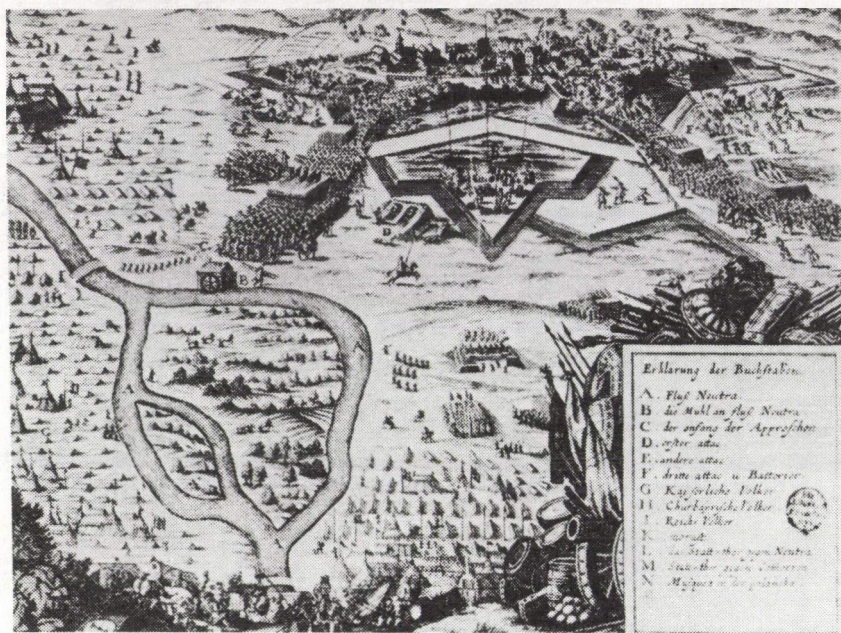 Erklarung der Buchstaben
A. Fluß Neutra
B die Muhl an fluß Neutra
C der anfang der Approschen
D. erster attac
E. andere attac
F. dritte attac u Batterien
G Kayserliche Volker
H. Churbayrische Volker
I. Reichs Volker
K morast
L gegen Neutra
M gegen
N
B
A
A
D